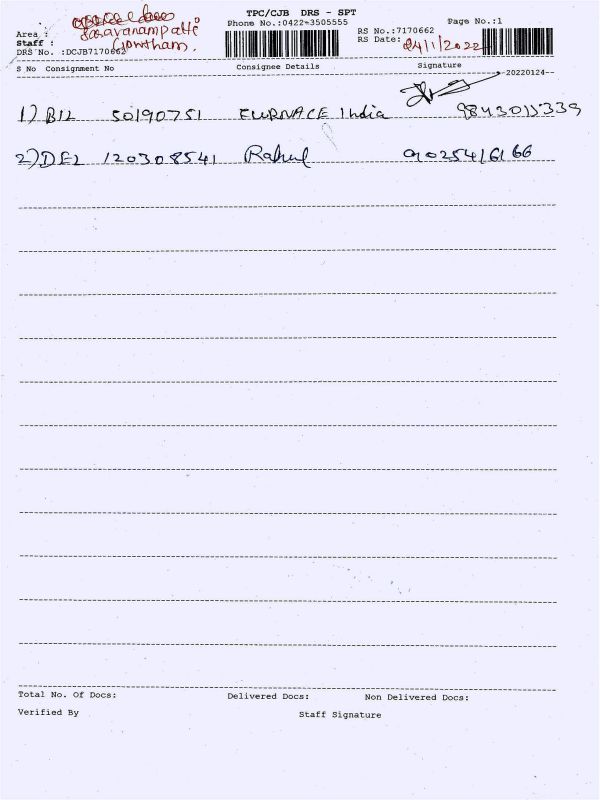 TPC/CJB DRS - SPT
Phone No.:0422+3505555
Page No.:1
Area :
Saravanampatti
RS No.:7170662
Staff :
Gowtham.
RS Date:
24/1/2022
DRS No. :DCJB7170662
S No Consignment No Consignee Details Signature
--20220124--
1) BIL 50190751 FURNACE India 9843015339
2) DEL 120308541 Rahul 9025416166
Total No. Of Docs: Delivered Docs: Non Delivered Docs:
Verified By Staff Signature